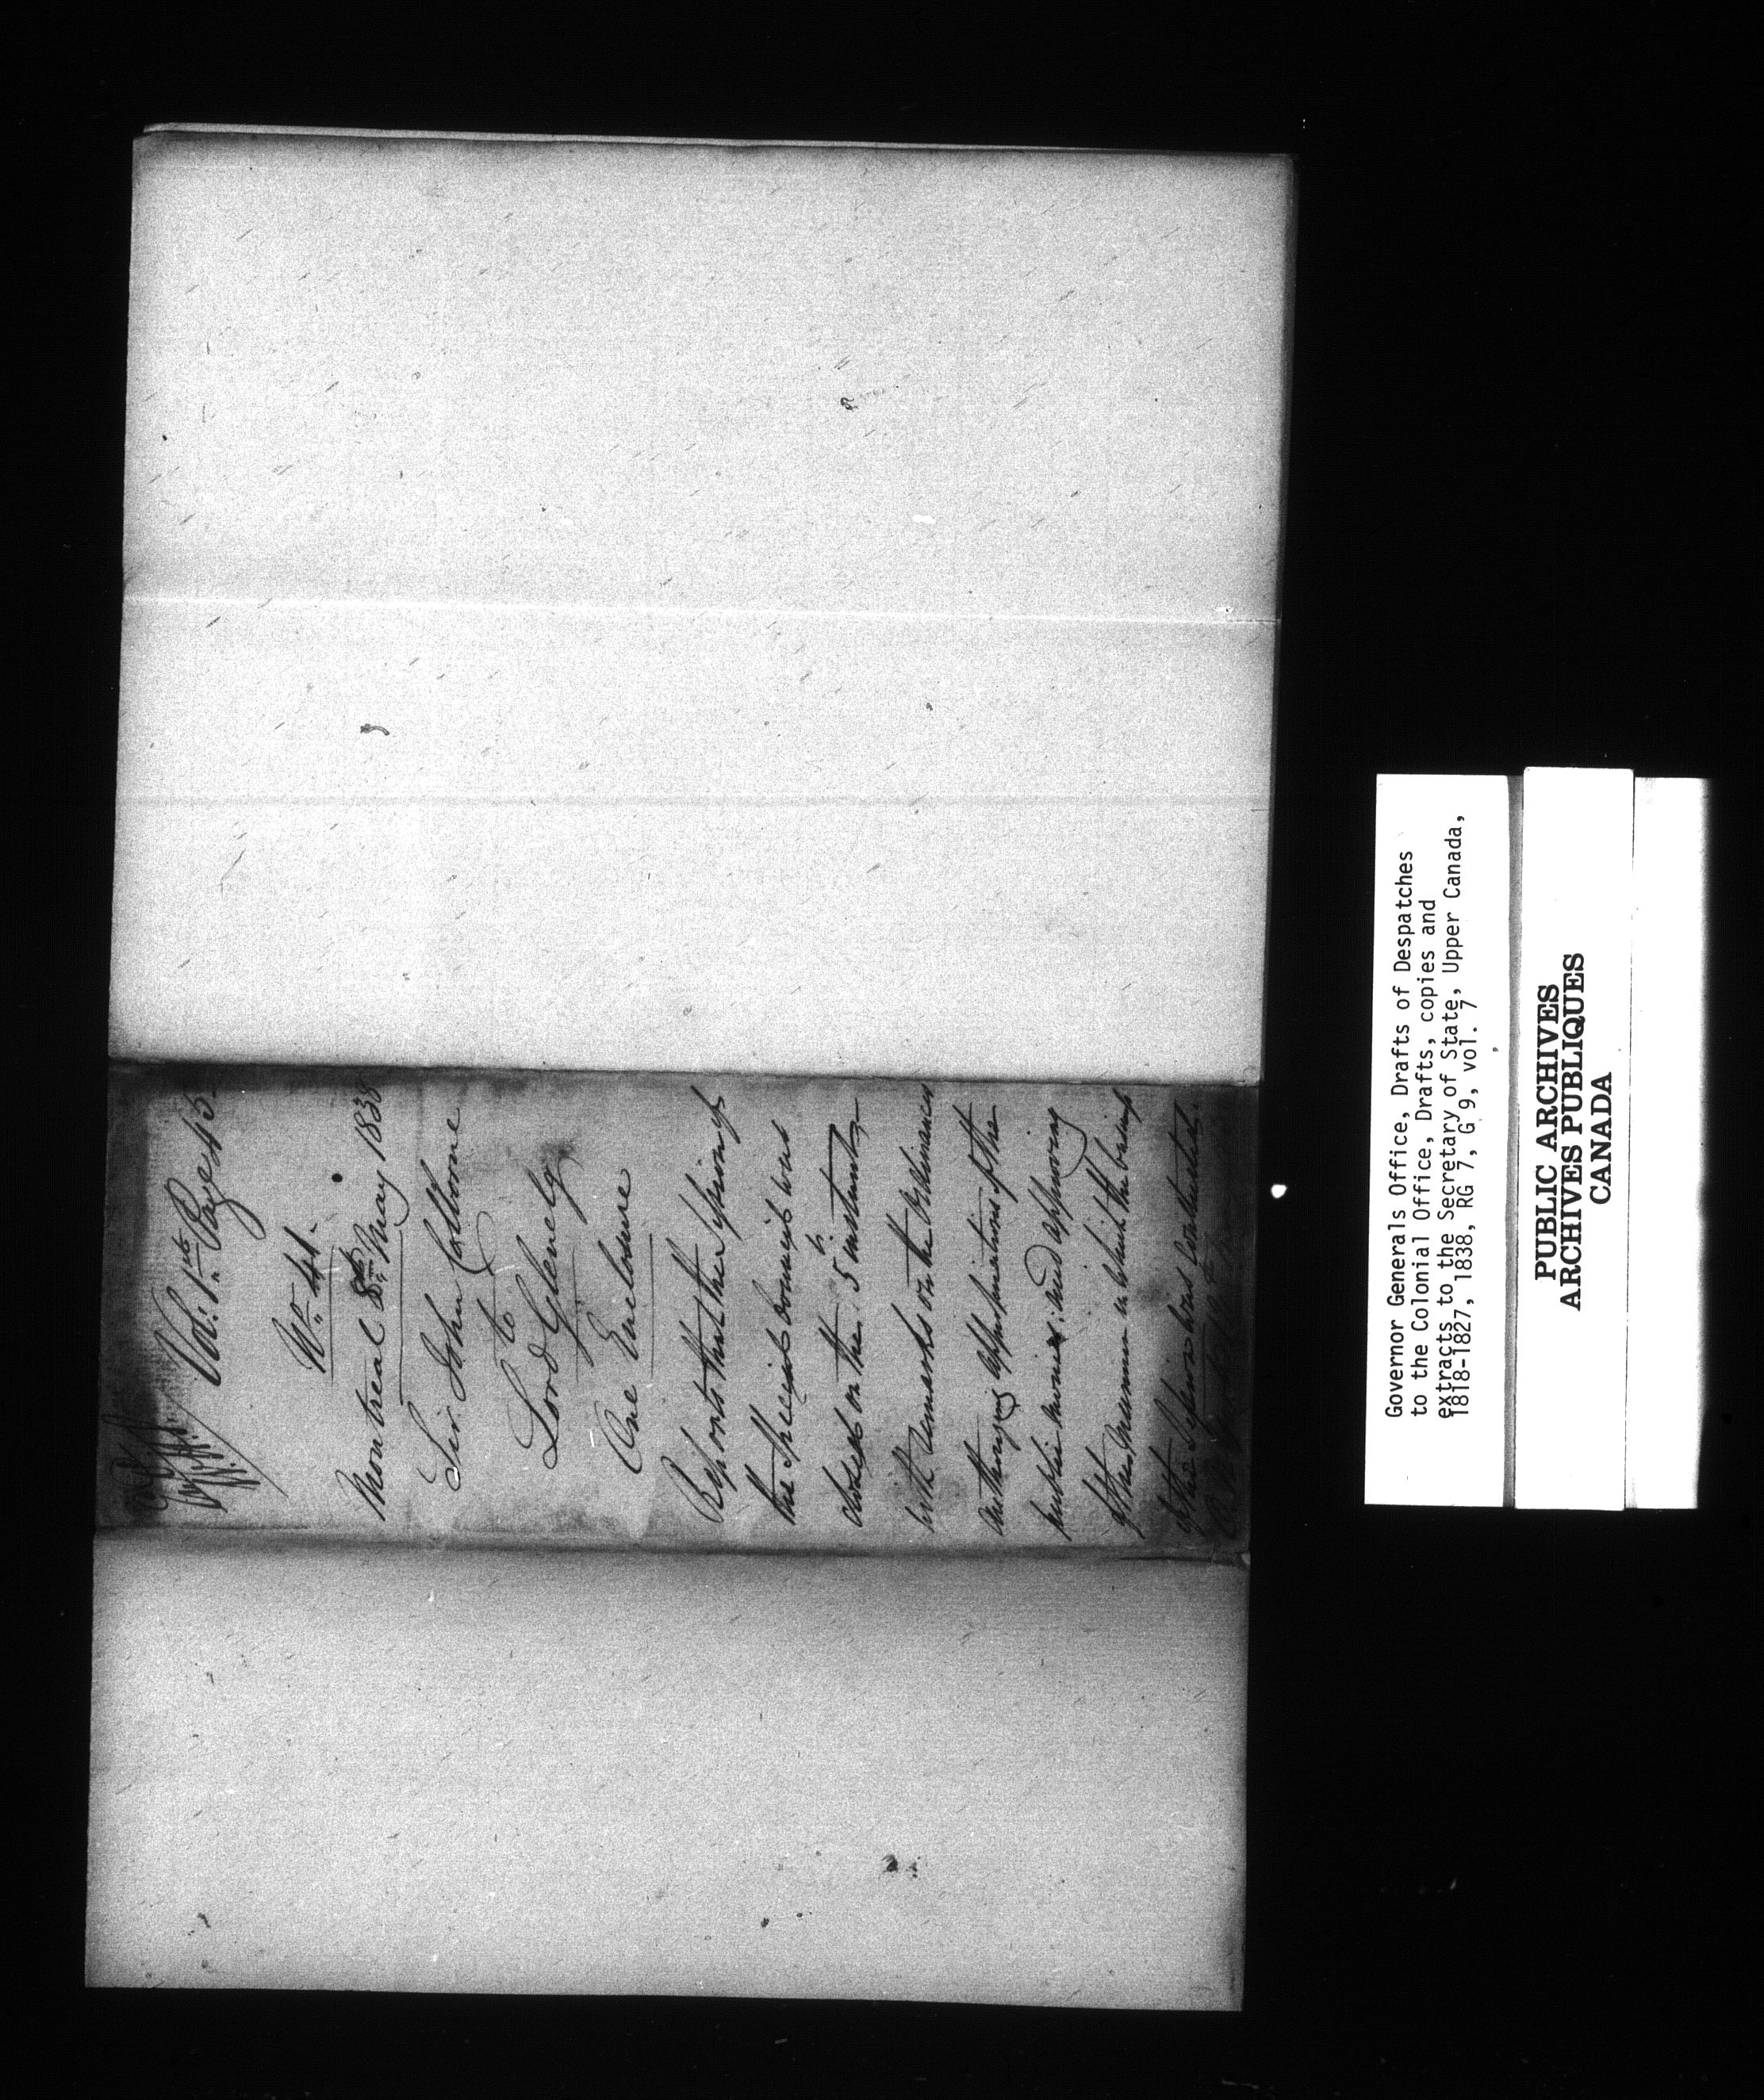 Vol: 1st Page 45
No 41.
Montreal 8th May 1838
Sir John Colborne
to
Lord Glenelg
One Enclosure
Reports that the Session of
the Special Council was
closed on the 5th instant,
with remarks on the Ordinances
authorizing appropriations of the
public monies: and approving
of the manner in which the business
of the Session was conducted.
Governor Generals Office, Drafts of Despatches
to the Colonial Office, Drafts, copies and
extracts to the Secretary of State, Upper Canada,
1818-1827, 1838, RG 7, G 9, vol. 7
PUBLIC ARCHIVES
ARCHIVES PUBLIQUES
CANADA